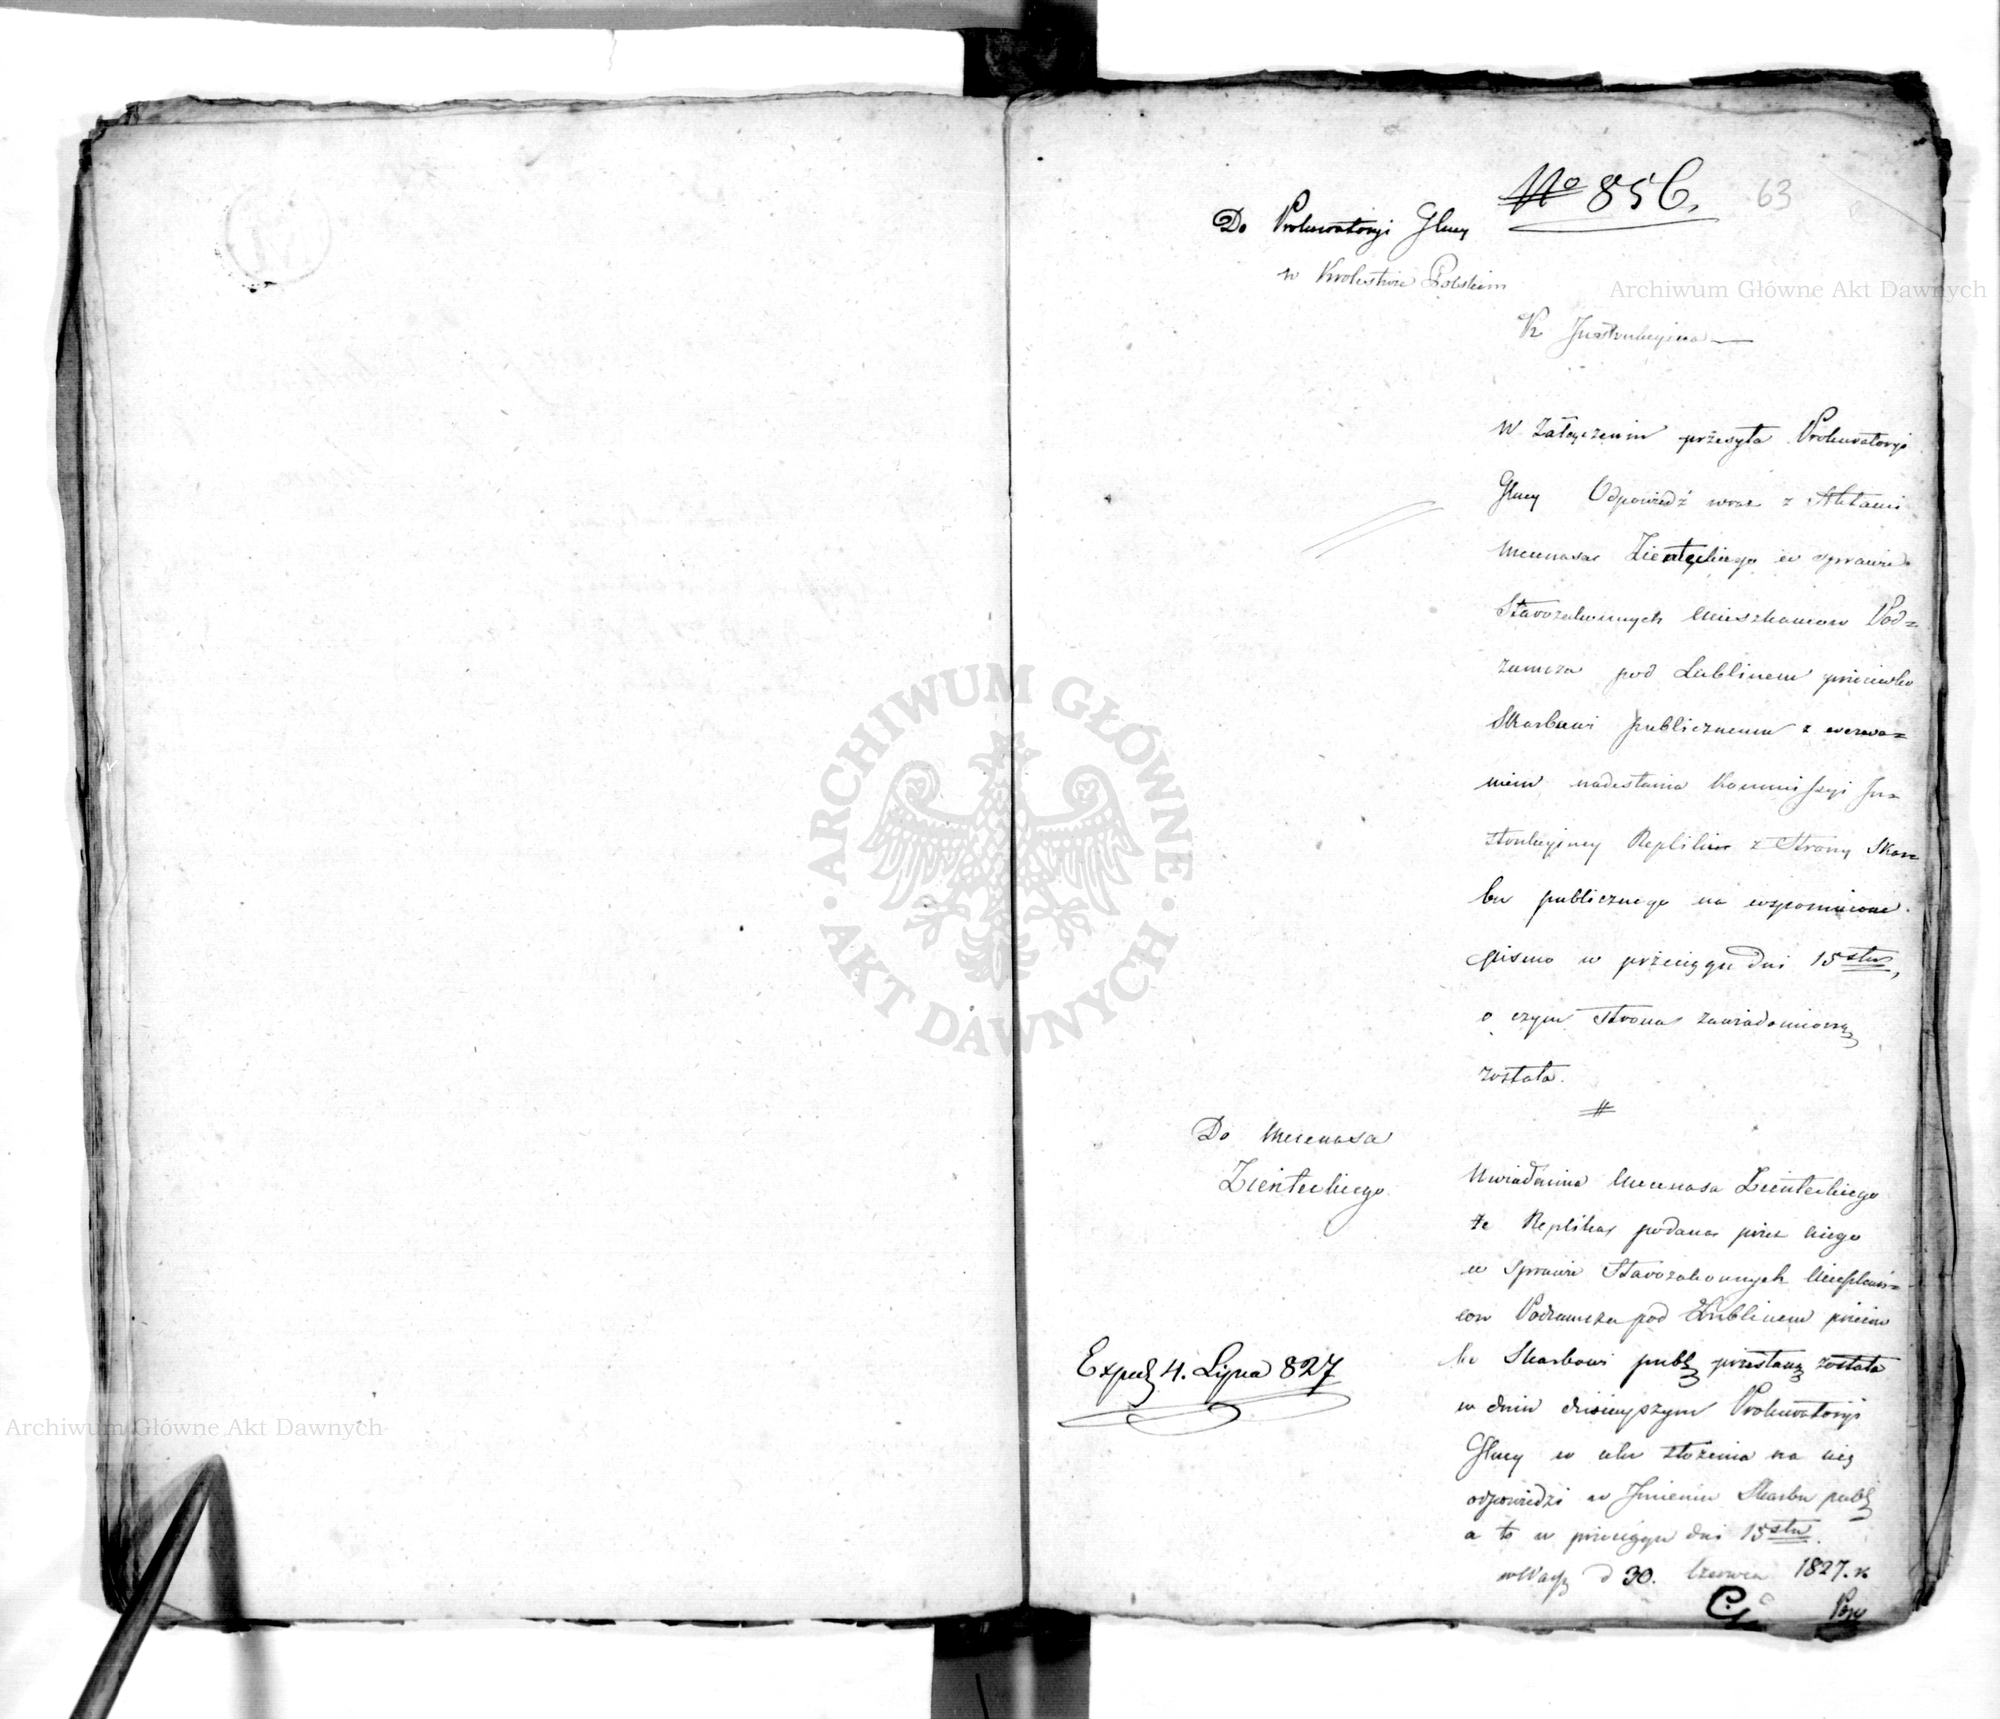 No 856.
63
Do Prokuratoryi Glney
w Krolestwie Polskim
K. Instrukcyina
W Załączeniu przesyła Prokuratoryi
Glney Odpowiedź wraz z Aktami
Mecenasa Zienteckiego w sprawie
Starozakonnych Mieszkancow Pod=
zamcza pod Lublinem przeciwko
Skarbowi publicznemu z wezwa=
niem nadesłania Kommissyi In=
strukcyiney Repliki z Strony Skar=
bu publicznego na wspomnione
pismo w przeciągu dni 15stu,
o czym Strona zawiadomioną
została.
Do Mecenasa
Zienteckiego
Uwiadamia Mecenasa Zienteckiego
że Replika podana przez niego
w Sprawie Starozakonnych Mieszkań=
cow Podzamcza pod Lublinem przeciw
ko Skarbowi publ przesłaną została
w dniu dzisieyszym Prokuratoryi
Glney w celu złożenia na nię
odpowiedzi w Imieniu Skarbu publ
a to w przeciągu dni 15stu.
Exped 4. Lipca 827
w Wars d 30. Czerwca 1827. r
Archiwum Główne Akt Dawnych
Archiwum Główne Akt Dawnych
ARCHIWUM GŁÓWNE
AKT DAWNYCH